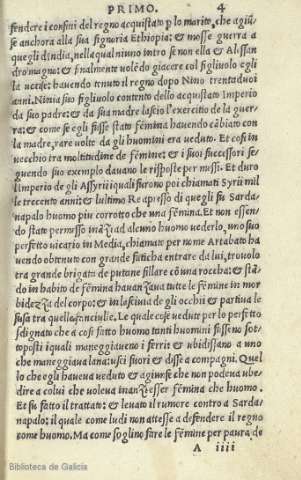 PRIMO. 4
fendere i confini del regno acquistato p lo marito, che agiũ
se anchora alla sua signoria Ethiopia: & mosse guerra a
quegli dindia, nella qual niuno intro se non ella & Alissan
dro magno: & finalmente volẽdo giacere col figliuolo egli
la uccise: havendo tenuto il regno dopo Nino trentadui
anni. Ninia suo figliuolo contento dello acquistato Imperio
da suo padre: & da sua madre lascio l'exercitio de la guer
ra: & come se egli fusse stato fẽmina havendo cãbiato con
la madre, rare volte da gli huomini era veduto. Et cosi in
vecchio tra moltitudine de fẽmine: & i suoi successori se
guendo suo exempio davano le risposte per messi. Et duro
l'imperio de gli Assyrii i quali furono poi chiamati Syrii mil
le trecento anni: & lultimo Re apresso di quegli su Sarda
napalo huomo piu corrotto che una fẽmina. Et non essen
do stato permesso inãzi ad alcuno huomo vederlo, uno suo
perfetto vicario in Media, chiamato per nome Artabato ha
vendo obtenuto con grande faticha entrare da lui, trovolo
tra grande brigata de putane fillare cõ una roccha: & stã
do in habito de fẽmina havanzava tutte le fẽmine in mor
bidezza del corpo: & in lascivia de gli occhi & partiva le
fusa tra quelle fanciulle. Le quale cose vedute per lo perfetto
sdignato che a cosi fatto huomo tanti huomini fusseno sot
toposti i quali maneggiaveno i ferri: & ubidissano a uno
che maneggiava lana: usci fuori & disse a compagni. Quel
lo che egli haveva veduto & agiunse che non podeva ube
dire a colui che voleva inanzi esser fẽmina che huomo.
Et fu fatto il trattato: & levato il rumore contro a Sarda
napalo: il quale come ludi non attesse a defendere il regno
come huomo. Ma come sogliino fare le fẽmine per paura de
A iiii
Biblioteca de Galicia